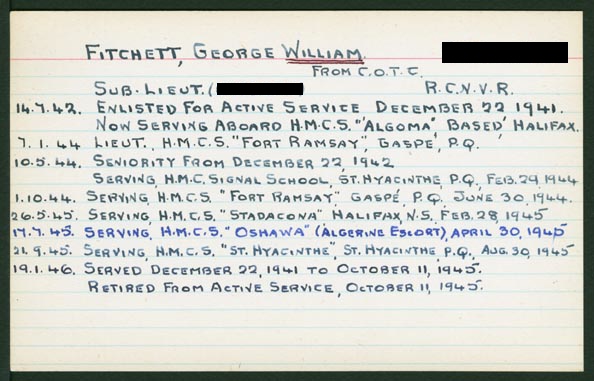 FITCHETT, GEORGE WILLIAM.
FROM C.O.T.C.
SUB. LIEUT. ( R.C.N.V.R.
14.7.42. ENLISTED FOR ACTIVE SERVICE DECEMBER 22 1941.
NOW SERVING ABOARD H.M.C.S. "ALGOMA" BASED HALIFAX.
7.1.44 LIEUT., H.M.C.S. "FORT RAMSAY," GASPÉ, P.Q.
10.5.44. SENIORITY FROM DECEMBER 22, 1942
SERVING, H.M.C. SIGNAL SCHOOL, ST. HYACINTHE, P.Q., FEB. 29, 1944
1.10.44. SERVING H.M.C.S. "FORT RAMSAY," GASPÉ, P.Q. JUNE 30, 1944.
26.5.45. SERVING, H.M.C.S. "STADACONA" HALIFAX, N.S, FEB. 28, 1945
17.7.45. SERVING, H.M.C.S. "OSHAWA" (ALGERINE ESCORT), APRIL 30, 1945
21.9.45. SERVING, H.M.C.S. "ST. HYACINTHE", ST. HYACINTHE, P.Q., AUG. 30, 1945
19.1.46. SERVED DECEMBER 22, 1941 TO OCTOBER 11, 1945.
RETIRED FROM ACTIVE SERVICE, OCTOBER 11, 1945.